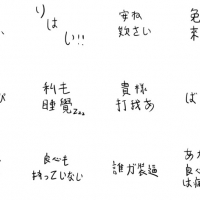 りは
い!!
安ね
さい
私も
睡覺zzz
貴様
打我あ
ば
良心も
持っていない
誰が裝逼
あ
良心
は